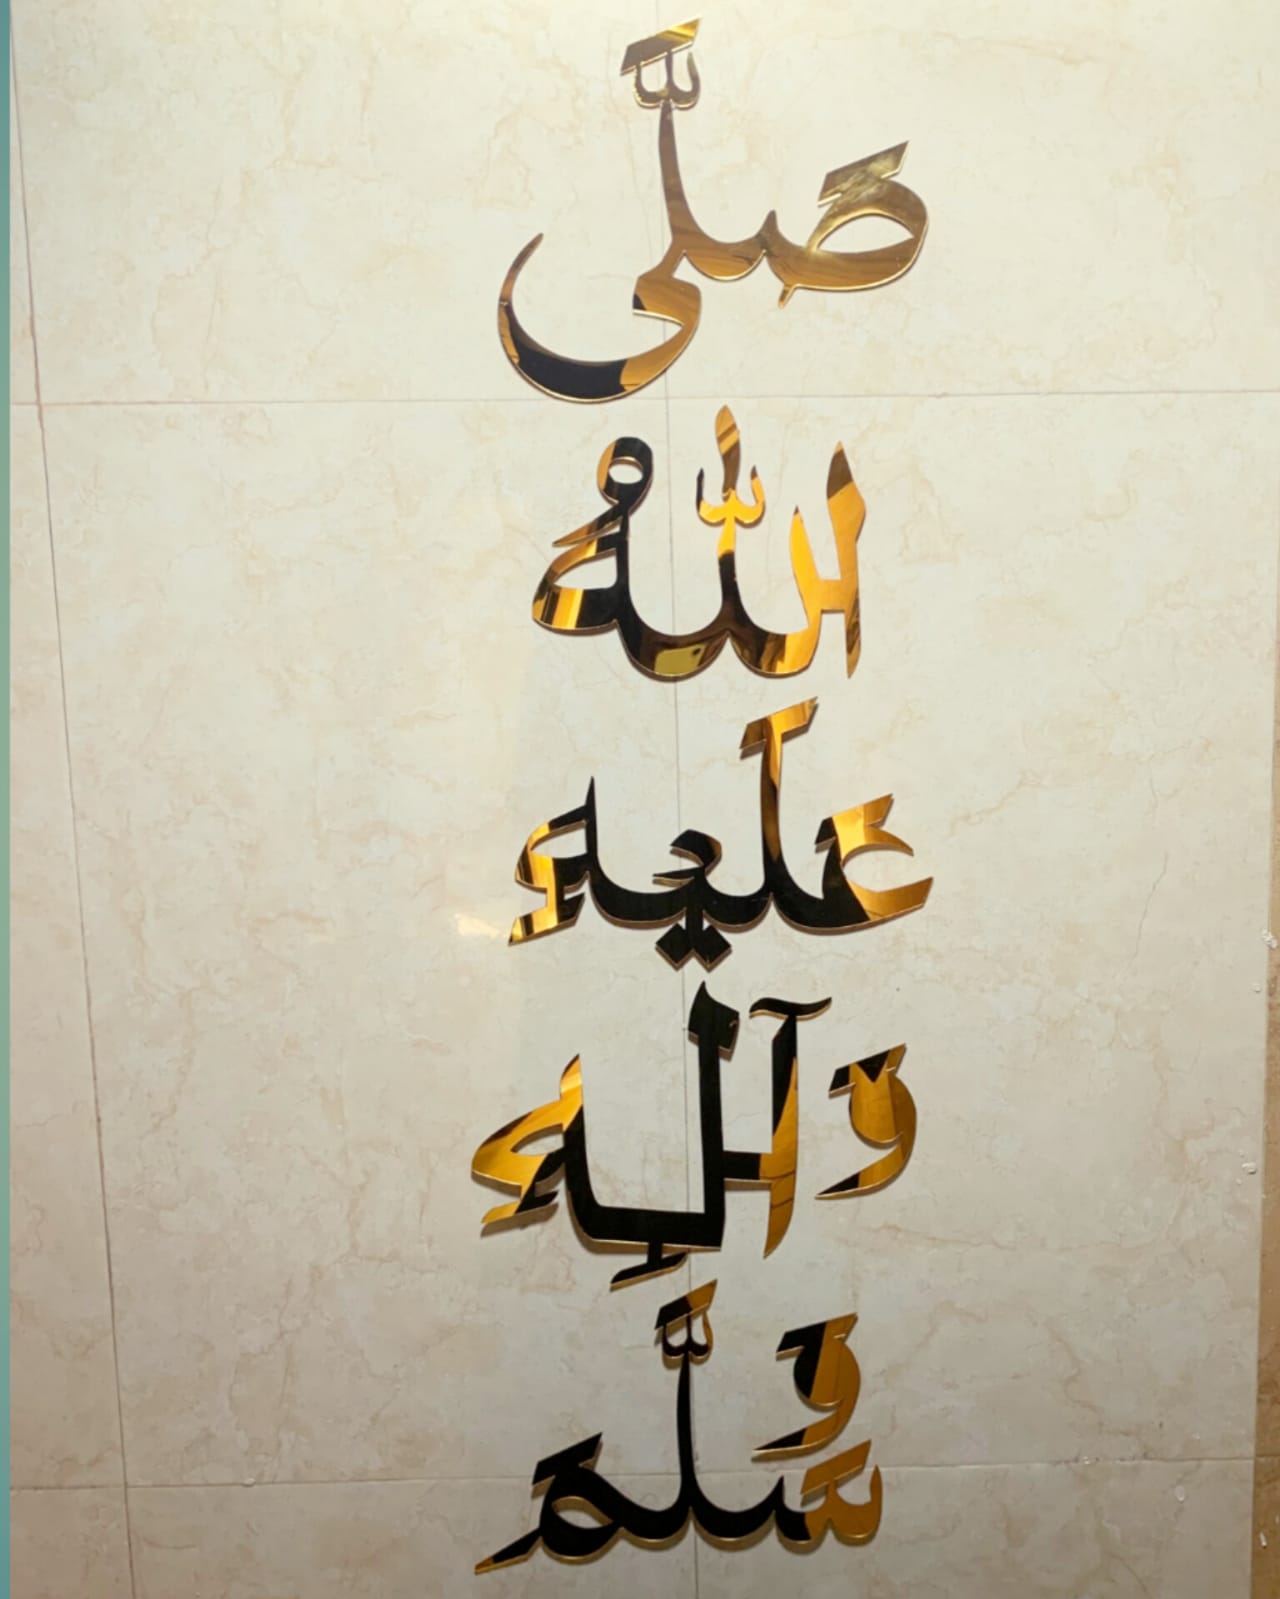 صَلَّى
اللّٰهُ
عَلَيهِ
وَآلِهِ
وَسَلَّمَ